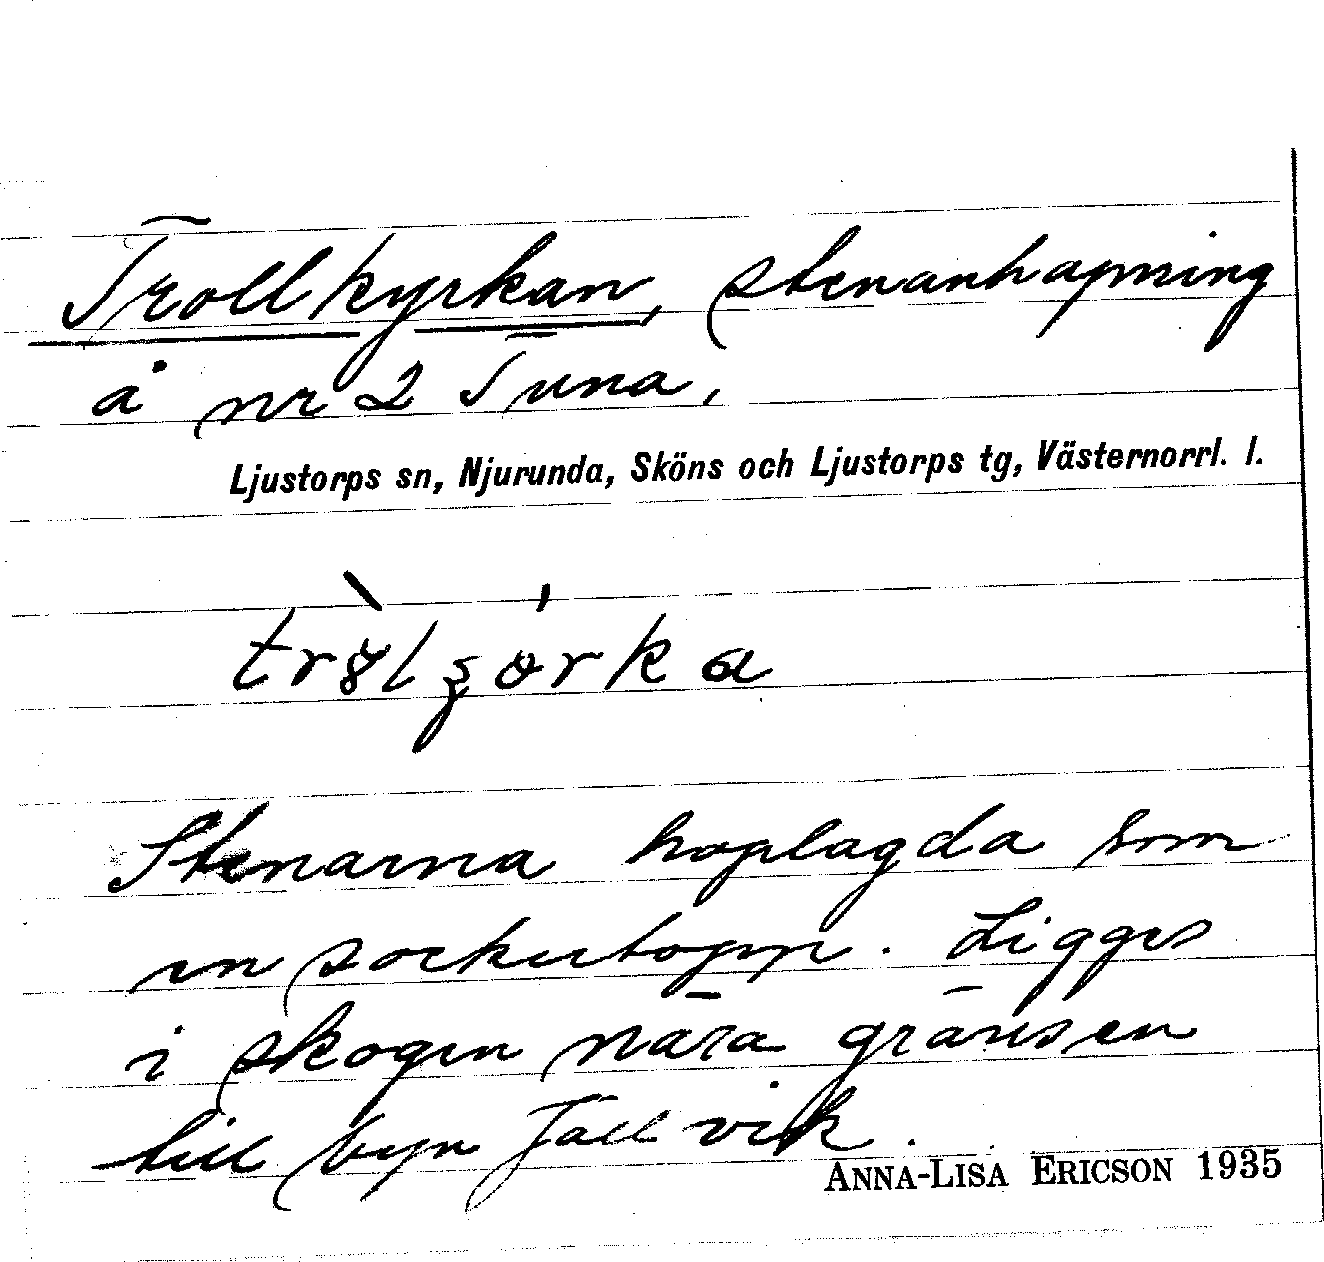 Trollkyrkan, stenanhopning
å nr 2 Tuna,
Ljustorps sn, Njurunda, Sköns och Ljustorps tg, Västernorrl. l.
Stenarna hoplagda som
en sockertopp. Ligger
i skogen nära gränsen
till byn Jällvik.
ANNA-LISA ERICSON 1935